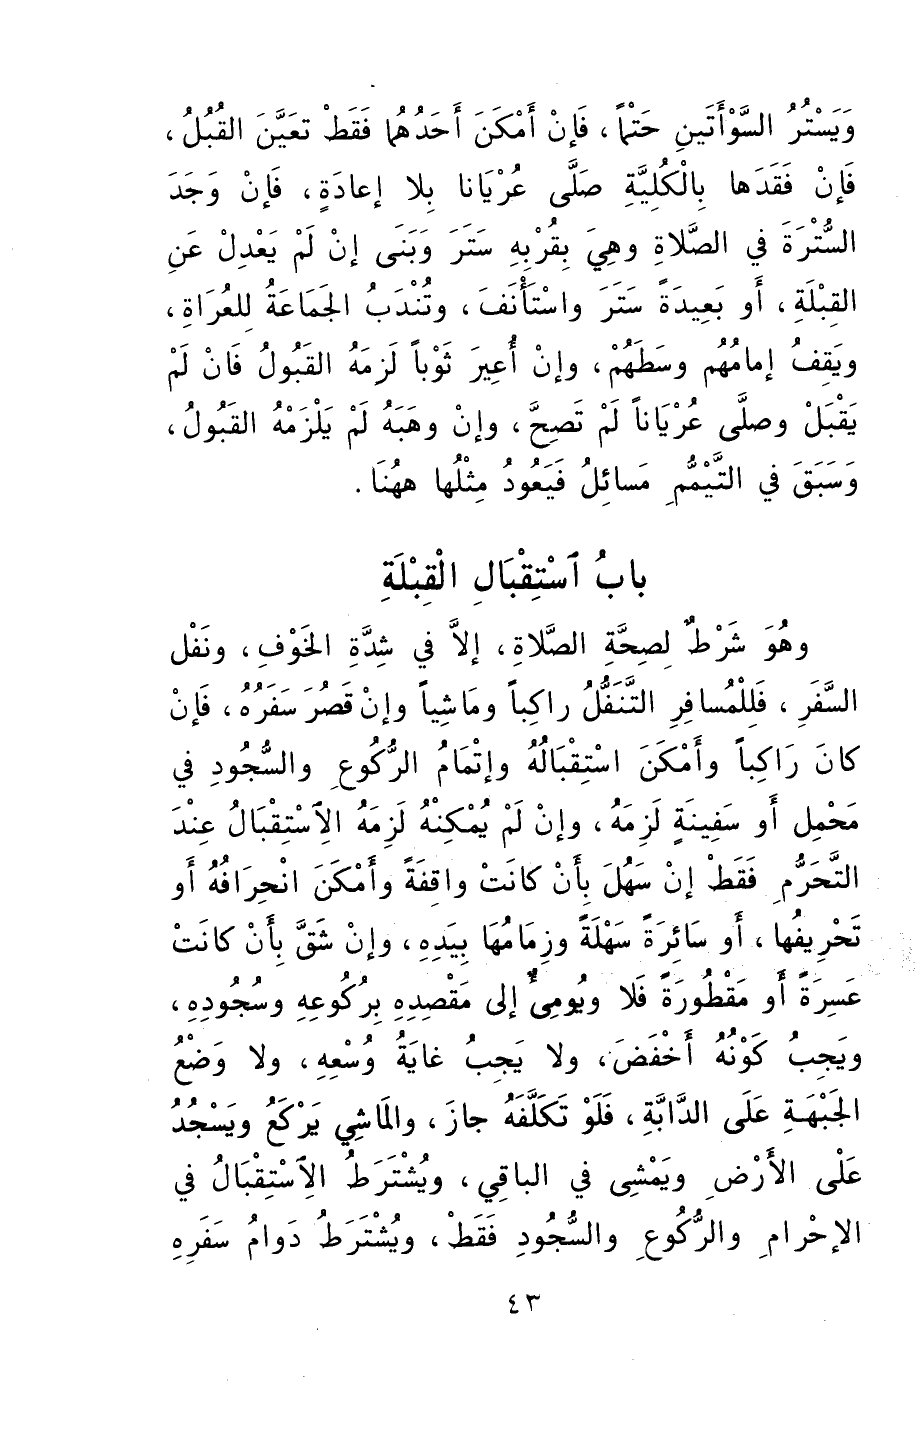 وَيَسْتُرُ السَّوْأَتَينِ حَتْماً، فَإِنْ أَمْكَنَ أَحَدُهُما فَقَطْ تعَيَّنَ القُبُلُ،
فَإنْ فَقَدَها بِالْكُلِيَّةِ صَلَّى عُرْيَانا بِلا إعادَةٍ، فَإنْ وَجَدَ
السُّتْرَةَ في الصَّلاةِ وهِيَ بِقُرْبِهِ سَتَرَ وَبَنَى إنْ لَمْ يَعْدِلْ عَنِ
القِبْلَةِ، أَو بَعِيدَةً سَتَرَ واسْتَأْنَفَ، وتُنْدَبُ الجَمَاعَةُ للعُرَاةِ،
ويَقِفُ إمامُهُم وسَطَهُمْ، وإنْ أُعِيرَ ثَوْباً لَزِمَهُ القَبُولُ فَانْ لَمْ
يَقْبَلْ وصلَّى عُرْيَاناً لَمْ تَصِحَّ، وإنْ وهَبَهُ لَمْ يَلْزَمْهُ القَبُولُ،
وَسَبَقَ في التَّيْمُّمِ مَسائِلُ فَيَعُودُ مِثْلُها ههُنَا.
بابُ ٱسْتِقْبَالِ الْقِبْلَةِ
وهُوَ شَرْطٌ لِصِحَّةِ الصَّلاةِ، إلاَّ في شِدَّةِ الخَوْفِ، ونَفْل
السَّفَرِ، فَلِلْمُسافِرِ التَّنَفُّلُ راكِباً ومَاشِياً وإنْ قَصُرَ سَفَرُهُ، فَإنْ
كانَ رَاكِباً وأَمْكَنَ اسْتِقْبَالُهُ وإتْمَامُ الرُّكُوعِ والسُّجُودِ في
مَحْمِل أَو سَفِينَةٍ لَزِمَهُ، وإنْ لَمْ يُمْكِنْهُ لَزِمَهُ الِٱسْتِقْبَالُ عِنْدَ
التَّحَرُّمِ فَقَطْ إنْ سَهُلَ بِأَنْ كانَتْ واقِفَةً وأَمْكَنَ انْحِرافُهُ أَو
تَحْرِيفُها، أَو سَائِرَةً سَهْلَةً وزِمَامُهَا بِيَدِهِ، وإنْ شَقَّ بِأَنْ كانَتْ
عَسِرَةً أَو مَقْطُورَةً فَلا ويُومِئُ إلى مَقْصِدِهِ بِرُكُوعِهِ وسُجُودِهِ،
ويَجِبُ كَوْنُهُ أَخْفَضَ، ولا يَجِبُ غايَةُ وُسْعِهِ، ولا وَضْعُ
الجَبْهَةِ عَلَى الدَّابَّةِ، فَلَوْ تَكَلَّفَهُ جازَ، والمَاشِي يَرْكَعُ ويَسْجُدُ
عَلْى الأَرْضِ ويَمْشِى في الباقِي، ويُشْتَرَطُ الِٱسْتِقْبَالُ في
الإحْرامِ والرُّكُوعِ والسُّجُودِ فَقَطْ، ويُشْتَرَطُ دَوامُ سَفَرِهِ
٤٣